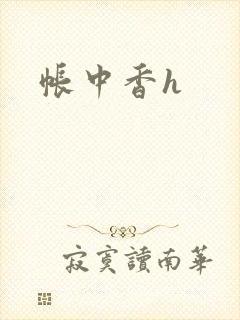 帳中香h
寂寞讀南華